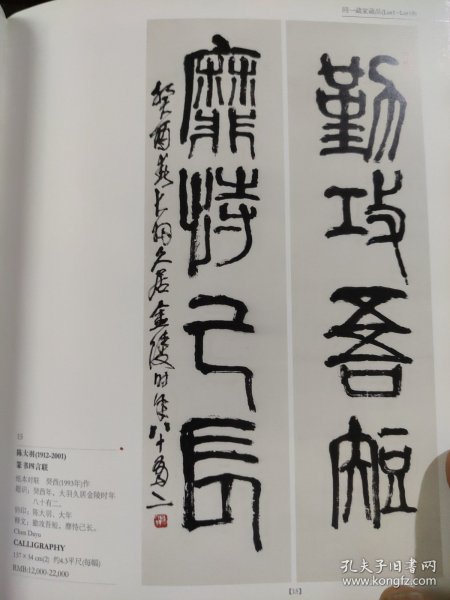 同一藏家藏品(Lot1-Lot18)
勤攻吾短
靡恃己长
癸酉年大羽久居金陵时年八十有二
15
陈大羽(1912-2001)
篆书四言联
纸本对联 癸酉(1993年)作
题识：癸酉年，大羽久居金陵时年
八十有二。
钤印：陈大羽、大年
释文：勤攻吾短，靡恃己长。
Chen Dayu
CALLIGRAPHY
137×34 cm(2) 约4.3平尺(每幅)
RMB:12,000-22,000
【15】
孔夫子旧书网